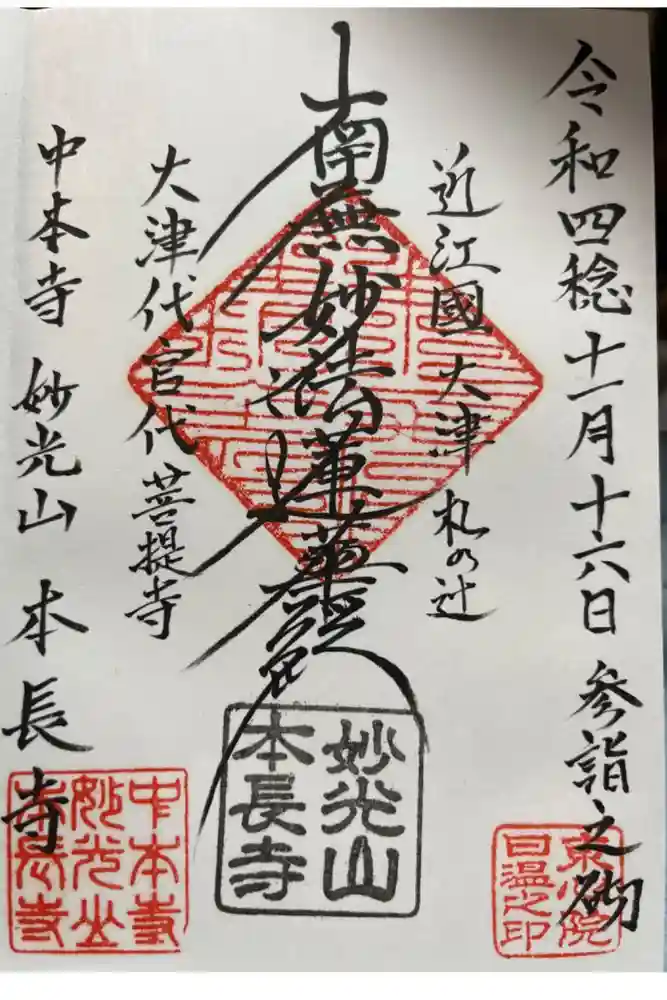 令和四稔十一月十六日 参詣之砌
近江國大津 札の辻
南無妙法蓮華経
大津代官代菩提寺
中本寺 妙光山 本長寺
妙光山
本長寺
中本寺
妙光山
本長寺
日温之印